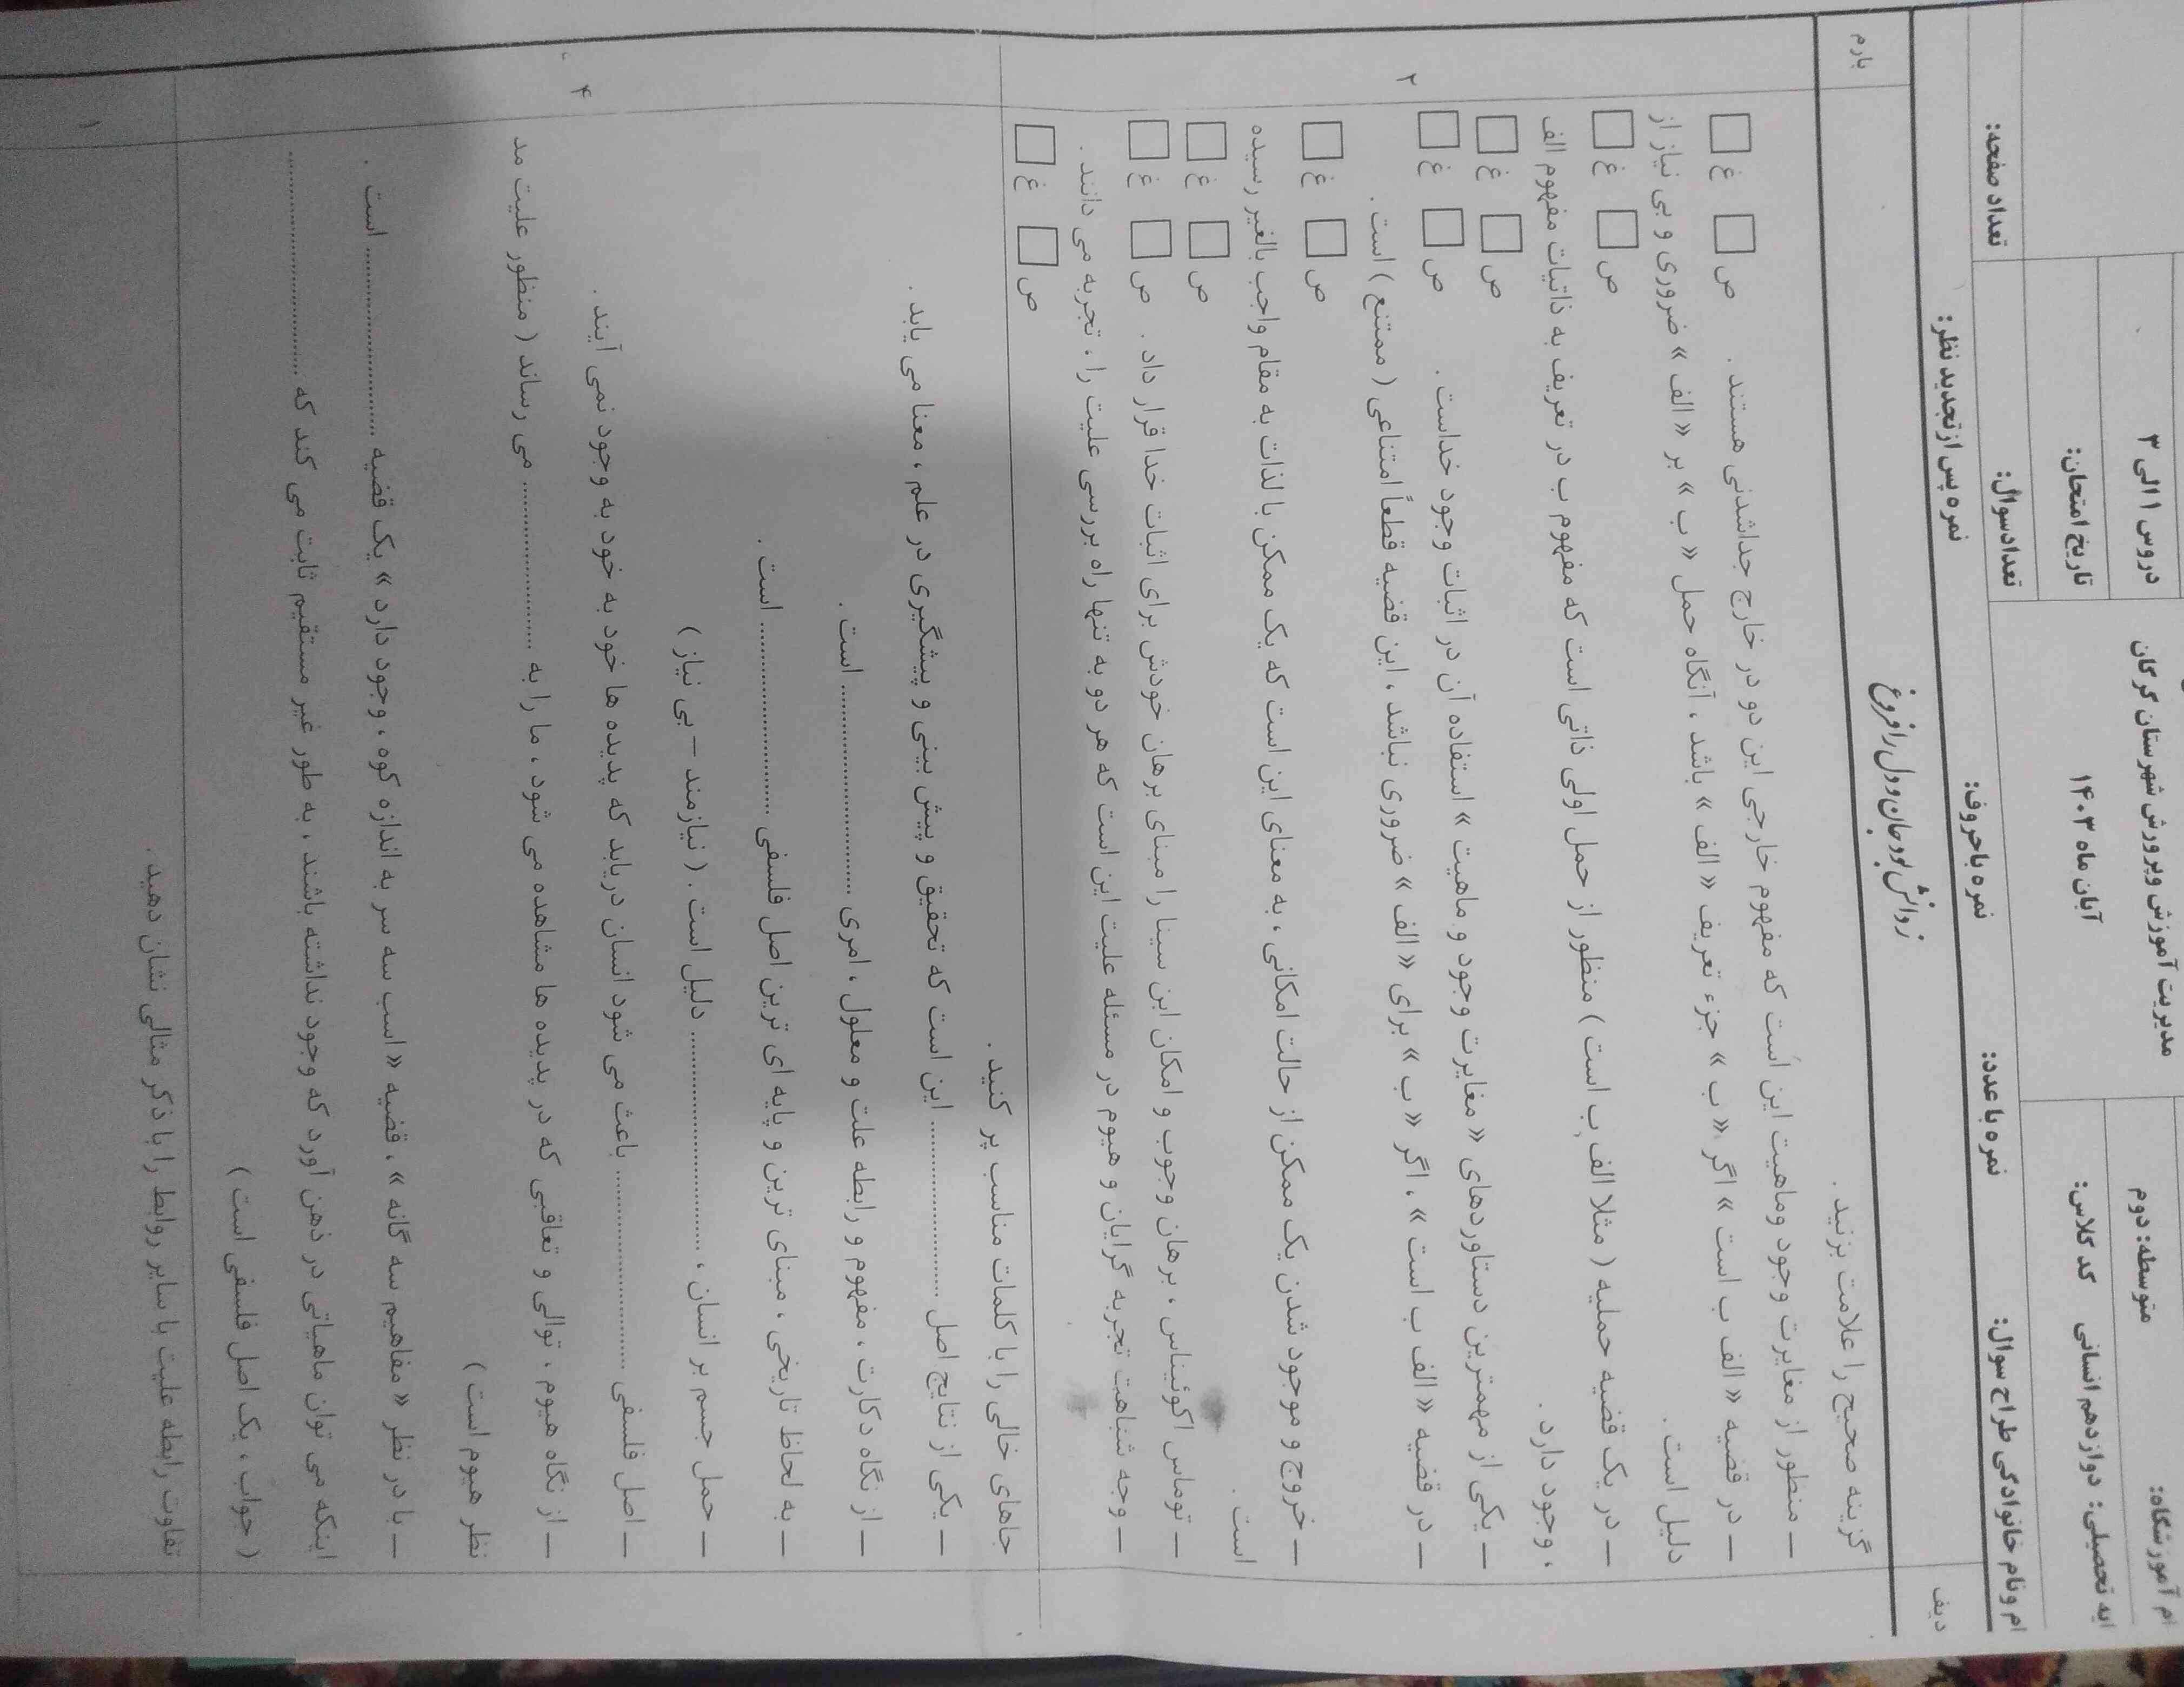 مدیریت آموزش وپرورش شهرستان گرگان
دروس ۱ الی ۳
ام آموزشگاه:
متوسطه: دوم
آبان ماه ۱۴۰۳
تاریخ امتحان:
ایه تحصیلی: دوازدهم انسانی
کد کلاس:
تعدادسوال:
تعداد صفحه:
ام ونام خانوادگی طراح سوال:
نمره با عدد:
نمره باحروف:
نمره پس ازتجدید نظر:
دیف
ز دانش بود جان و دل را فروغ
بارم
گزینه صحیح را علامت بزنید .
– منظور از مغایرت وجود وماهیت این است که مفهوم خارجی این دو در خارج جداشدنی هستند . ص □ غ □
– در قضیه « الف ب است » اگر « ب » جزء تعریف « الف » باشد ، آنگاه حمل « ب » بر « الف » ضروری و بی نیاز از
دلیل است . ص □ غ □
– در یک قضیه حملیه ( مثلا الف ب است ) منظور از حمل اولی ذاتی است که مفهوم ب در تعریف به ذاتیات مفهوم الف
، وجود دارد . ص □ غ □
– یکی از مهمترین دستاوردهای « مغایرت وجود و ماهیت » استفاده آن در اثبات وجود خداست . ص □ غ □
– در قضیه « الف ب است » ، اگر « ب » برای « الف » ضروری نباشد ، این قضیه قطعاً امتناعی ( ممتنع ) است .
۲
ص □ غ □
– خروج و موجود شدن یک ممکن از حالت امکانی ، به معنای این است که یک ممکن با لذات به مقام واجب بالغیر رسیده
است . ص □ غ □
– توماس اکوئیناس ، برهان وجوب و امکان ابن سینا را مبنای برهان خودش برای اثبات خدا قرار داد . ص □ غ □
– وجه شباهت تجربه گرایان و هیوم در مسئله علیت این است که هر دو به تنها راه بررسی علیت را ، تجربه می دانند .
ص □ غ □
جاهای خالی را با کلمات مناسب پر کنید .
– یکی از نتایج اصل .................... این است که تحقیق و پیش بینی و پیشگیری در علم ، معنا می یابد .
– از نگاه دکارت ، مفهوم و رابطه علت و معلول ، امری ........................ است .
– به لحاظ تاریخی ، مبنای ترین و پایه ای ترین اصل فلسفی ........................ است .
– حمل جسم بر انسان ، ........................ دلیل است . ( نیازمند – بی نیاز )
– اصل فلسفی ........................ باعث می شود انسان دریابد که پدیده ها خود به خود به وجود نمی آیند .
۴
– از نگاه هیوم ، توالی و تعاقبی که در پدیده ها مشاهده می شود ، ما را به .................... می رساند ( منظور علیت مد
نظر هیوم است )
– با در نظر « مفاهیم سه گانه » ، قضیه « اسب سه سر به اندازه کوه ، وجود دارد » یک قضیه .................... است .
اینکه می توان ماهیاتی در ذهن آورد که وجود نداشته باشند ، به طور غیر مستقیم ثابت می کند که ........................
( جواب ، یک اصل فلسفی است )
تفاوت رابطه علیت با سایر روابط را با ذکر مثالی نشان دهید .
۱